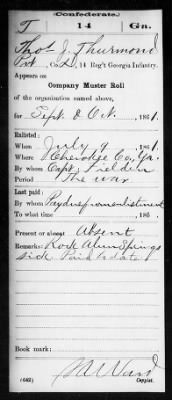 Confederate.
T 14 Ga.
Thos J. Thurmond
Pvt, Co. 14 Reg't Georgia Infantry.
Appears on
Company Muster Roll
of the organization named above,
for Sept. & Oct., 1861.
Enlisted:
When July 9, 1861.
Where Cherokee Co, Ga.
By whom Capt. Fielder
Period The war
Last paid:
By whom Pay due from enlistment
To what time , 186 .
Present or absent Absent
Remarks: Rock Alum Springs
sick Paid to date
Book mark:
M Ward
(642) Copyist.